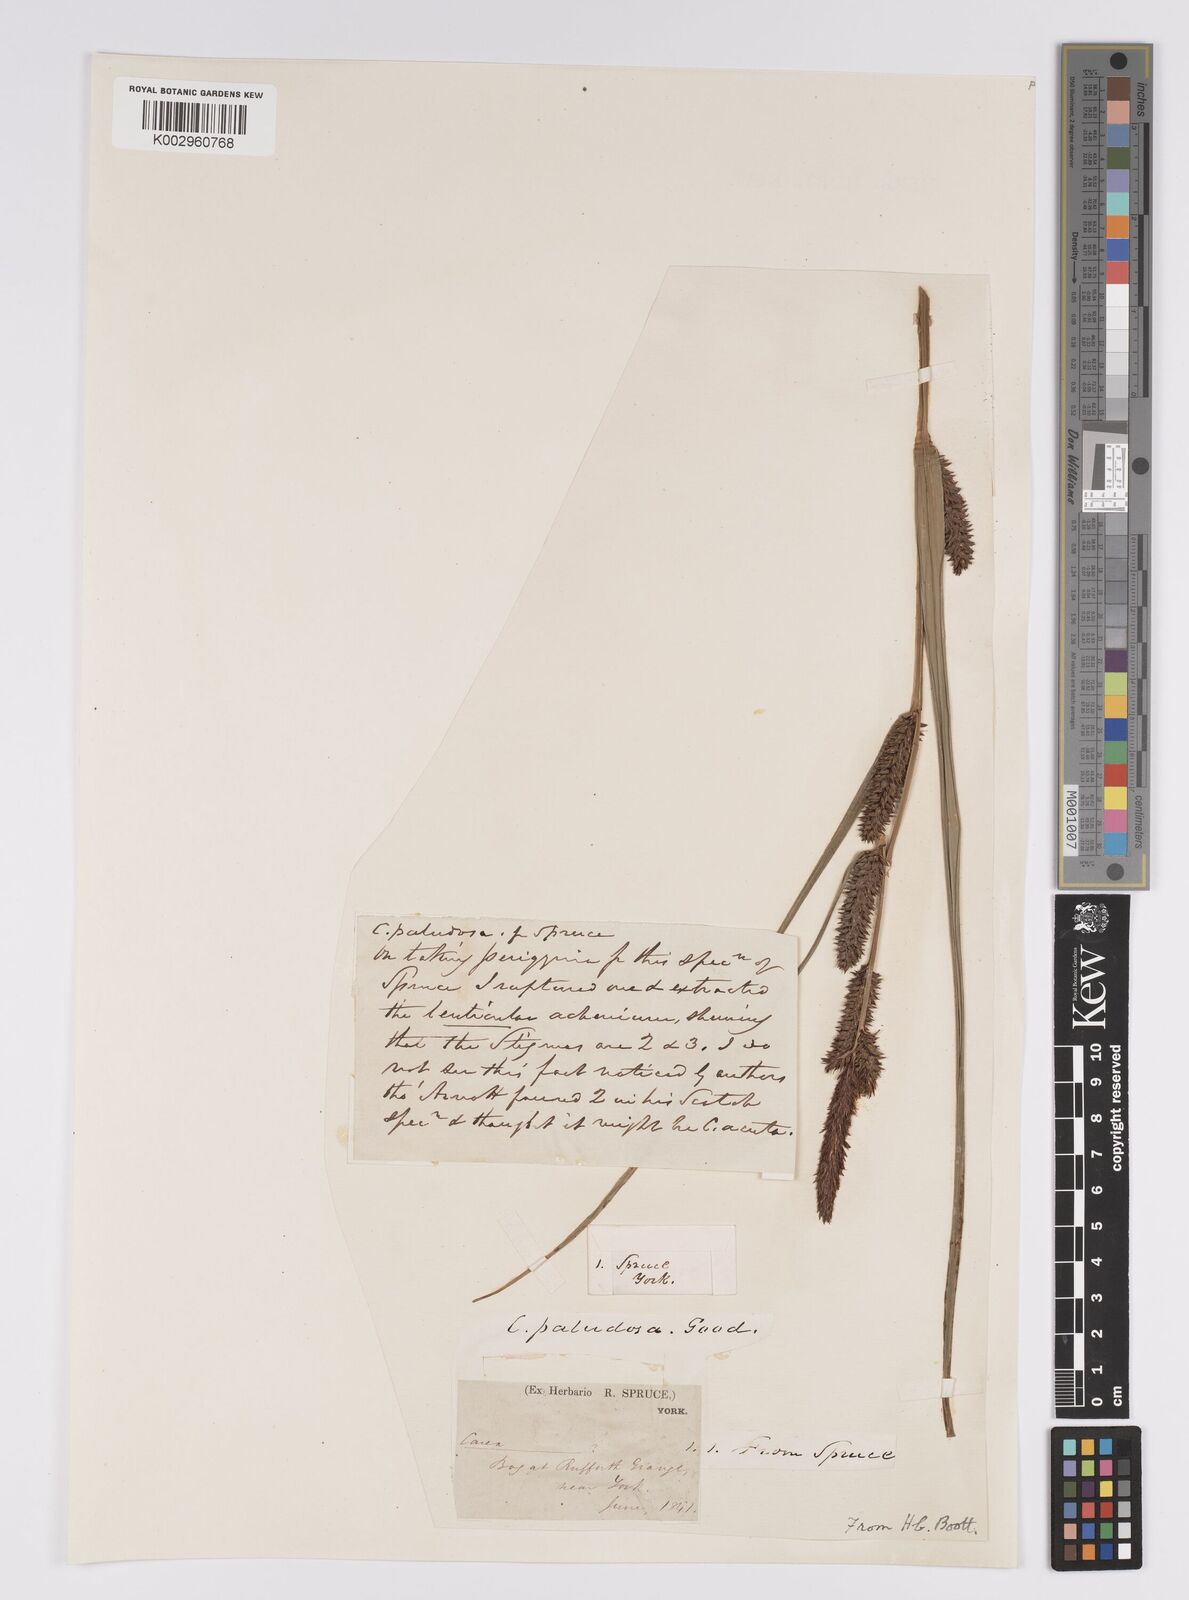 ROYAL BOTANIC GARDENS KEW
K002960768
C. paludosa. fr Spruce
on taking perigynia fr this specn of
Spruce I ruptured one & extracted
the lenticular achenium, shewing
that the Stigmas are 2 & 3. I do
not see this fact noticed by authors
tho' Arnott found 2 in his Scotch
specn & thought it might be C. acuta.
1. Spruce
York.
C. paludosa. Good.
(Ex Herbario R. SPRUCE.)
YORK.
Carex ?
1.
Bog at Rufforth Grange,
near York.
June, 1841.
1. From Spruce
From Hb. Boott.
inches
centimetres
Density
Don Williams
M001007
Kew
Royal Botanic Gardens
copyright reserved
0 1 2 3 4 5 6 7 8 9 10
cm